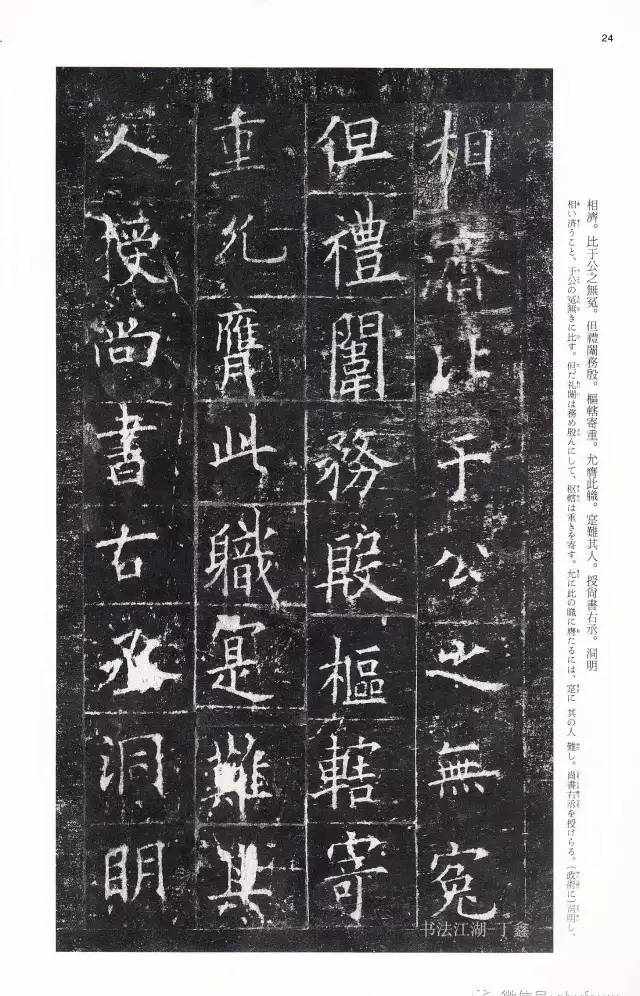 24
相濟比于公之無冤
但禮闈務殷樞轄寄
重允膺此職寔難其
人授尚書右丞洞明
相濟。比于公之無冤。但禮闈務殷。樞轄寄重。允膺此職。寔難其人。授尚書右丞。洞明
相い済うこと、于公の冤無きに比す。但だ礼闈は務め殷んにして、枢轄は重きを寄す。允に此の職に膺たるには、寔に其の人難し。尚書右丞を授けらる。（政術に）洞明し、
书法江湖-丁鑫